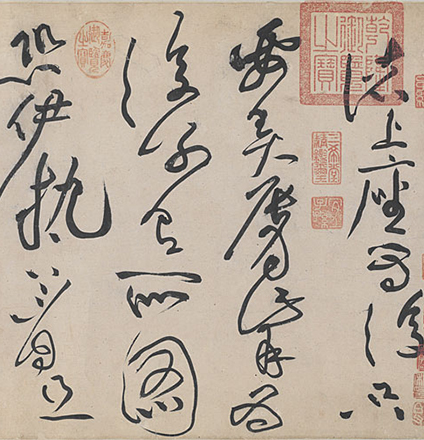 諸上座為復只
要弄脣觜為
復別有所圖
恐伊執著且
乾隆御覽之寶
三希堂精鑑璽
宜子孫